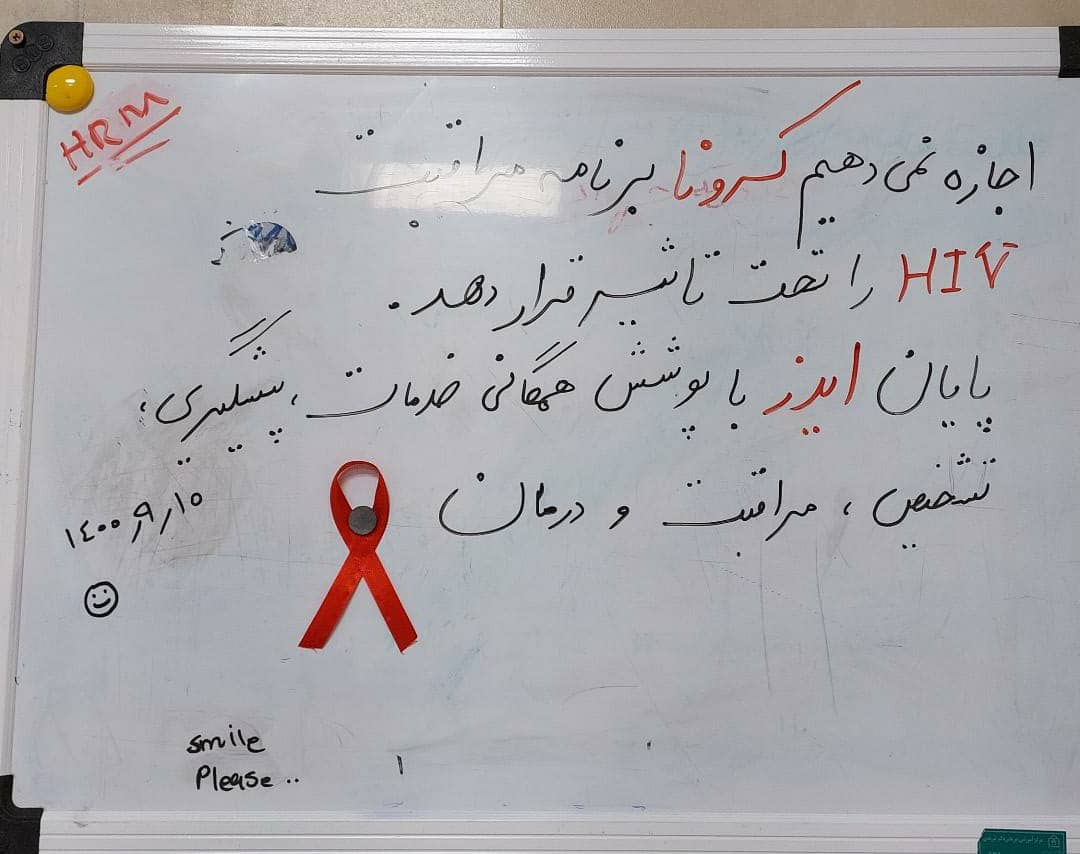 HRM
اجازه نمی دهیم کرونا برنامه مراقبت
HIV را تحت تاثیر قرار دهد.
پایان ایدز با پوشش همگانی خدمات، پیشگیری،
تشخیص، مراقبت و درمان
۱۴۰۰/۹/۱۰
smile
Please..